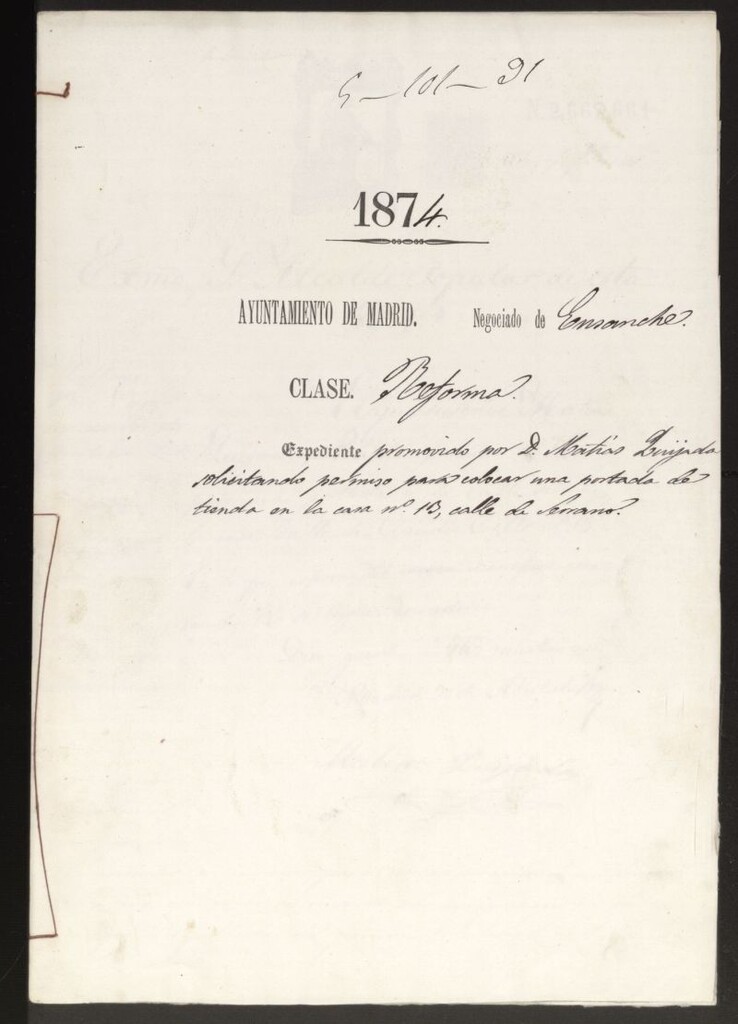 5-101-91
1874.
AYUNTAMIENTO DE MADRID. Negociado de Ensanche.
CLASE. Reforma.
Expediente promovido por D. Matías Quijada
solicitando permiso para colocar una portada de
tienda en la casa nº. 13, calle de Serrano.